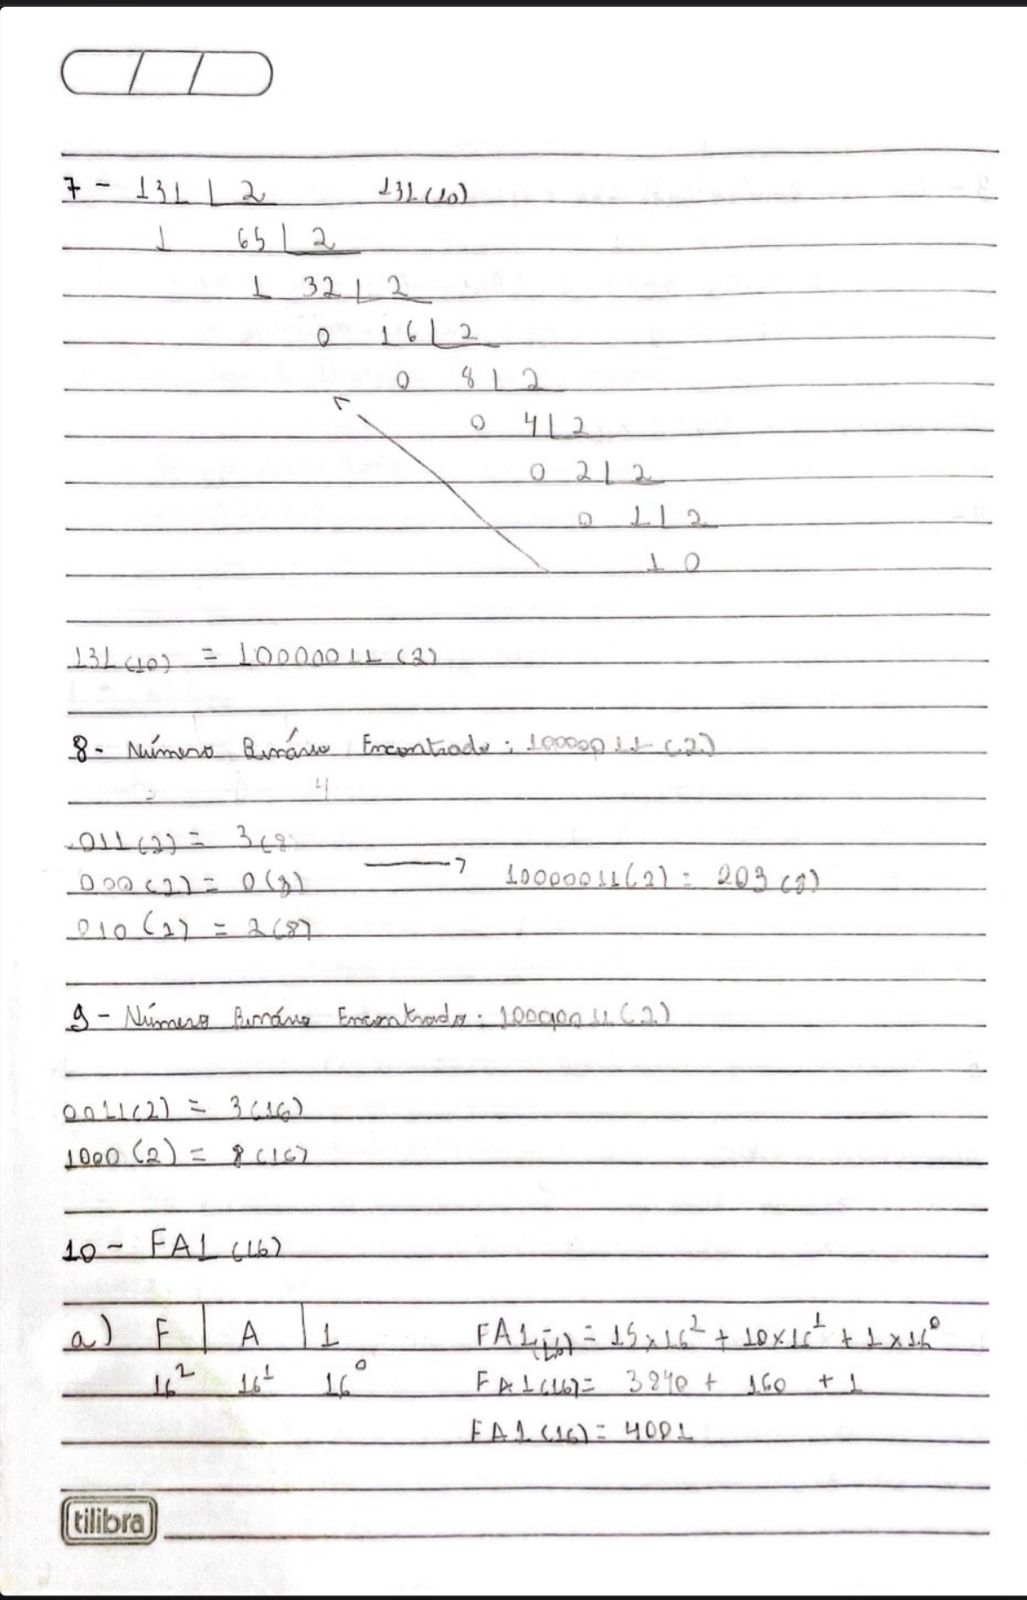 7 - 131 | 2 131(10)
1 65 | 2
1 32 | 2
0 16 | 2
0 8 | 2
0 4 | 2
0 2 | 2
0 1 | 2
1 0
131(10) = 10000011(2)
8 - Número Binário Encontrado: 10000011(2)
011(2) = 3(8)
000(2) = 0(8) → 10000011(2) = 203(8)
010(2) = 2(8)
9 - Número Binário Encontrado: 10000011(2)
0011(2) = 3(16)
1000(2) = 8(16)
10 - FA1(16)
a) F | A | 1 FA1(16) = 15x16² + 10x16¹ + 1x16⁰
16² 16¹ 16⁰ FA1(16) = 3840 + 160 + 1
FA1(16) = 4001
tilibra